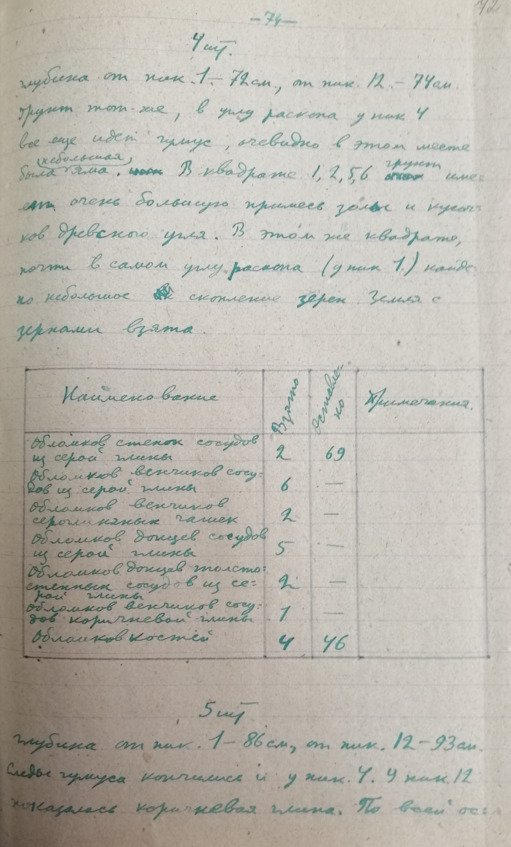 72
-74-
4 шт.
глубина от пик. 1 – 72 см., от пик. 12. – 74 см.
Грунт тот-же, в углу раскопа у пик 4
все еще идет гумус, очевидно в этом месте
была (небольшая) яма. В квадрате 1, 2, 5, 6 грунт имее
очень большую примесь золы и кусоч-
ков древесного угля. В этом же квадрате,
почти в самом углу раскопа (у пик 1.) найде-
но небольшое скопление зерен. Земля с
зернами взята.
Наименование Взято Оставле-но Примечания.
Обломков стенок сосудов
из серой глины 2 69
Обломков венчиков сосу-
дов из серой глины 6 —
Обломков венчиков
сероглиняных чашек 2 —
Обломков донцев сосудов
из серой глины 5 —
Обломков донцев толсто-
стенных сосудов из се-
рой глины 2 —
Обломков венчиков сосу-
дов коричневой глины 1 —
Обломков костей 4 46
5 шт
глубина от пик. 1 – 86 см, от пик. 12 – 93 см.
Следы гумуса кончились и у пик. 4. У пик 12
показалась коричневая глина. По всей ос-